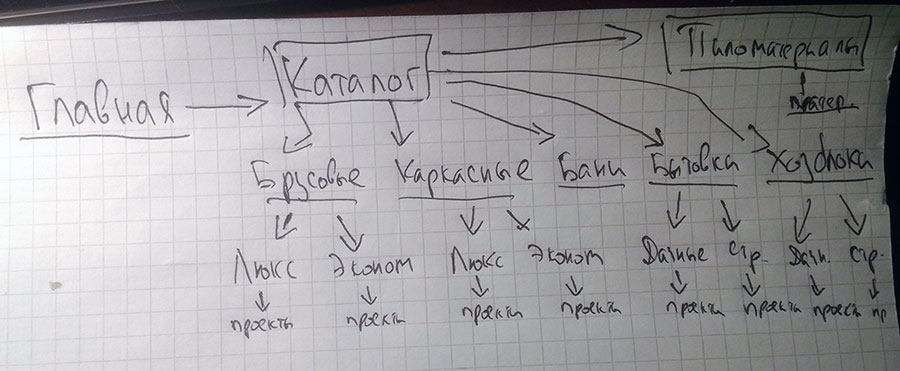 Пиломатериалы
Главная Каталог
Брусовые Каркасные Бани Бытовки Хозблоки
Люкс Эконом Люкс Эконом Дачные Стр. Дачн. Стр.
проекты проекты проекты проекты проекты проекты проекты пр